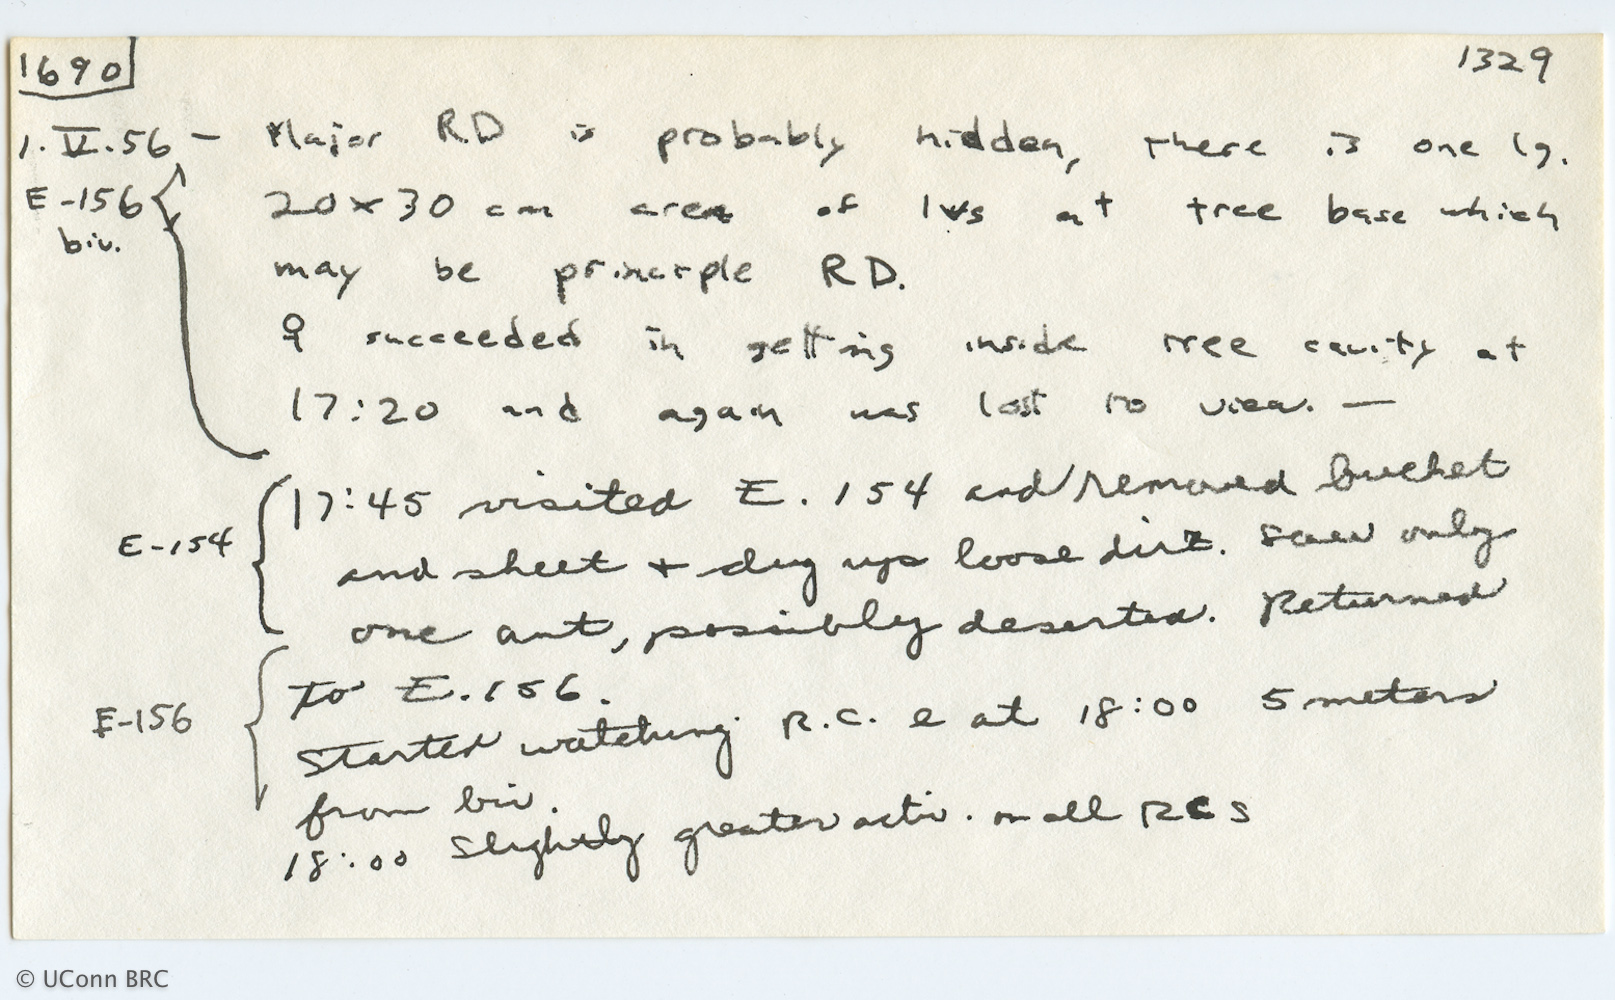 1690
1329
1.V.56 – Major RD is probably hidden, there is one lg.
E-156 biv.
20 x 30 cm area of lvs at tree base which
may be principle RD.
♀ succeeded in getting inside tree cavity at
17:20 and again was lost to view. —
E-154
17:45 visited E. 154 and removed bucket
and sheet + dug up loose dirt. Saw only
one ant, possibly deserted. Returned
E-156
to E. 156.
Started watching R.C. e at 18:00 5 meters
from biv.
18:00 Slightly greater activ. on all RCs
© UConn BRC